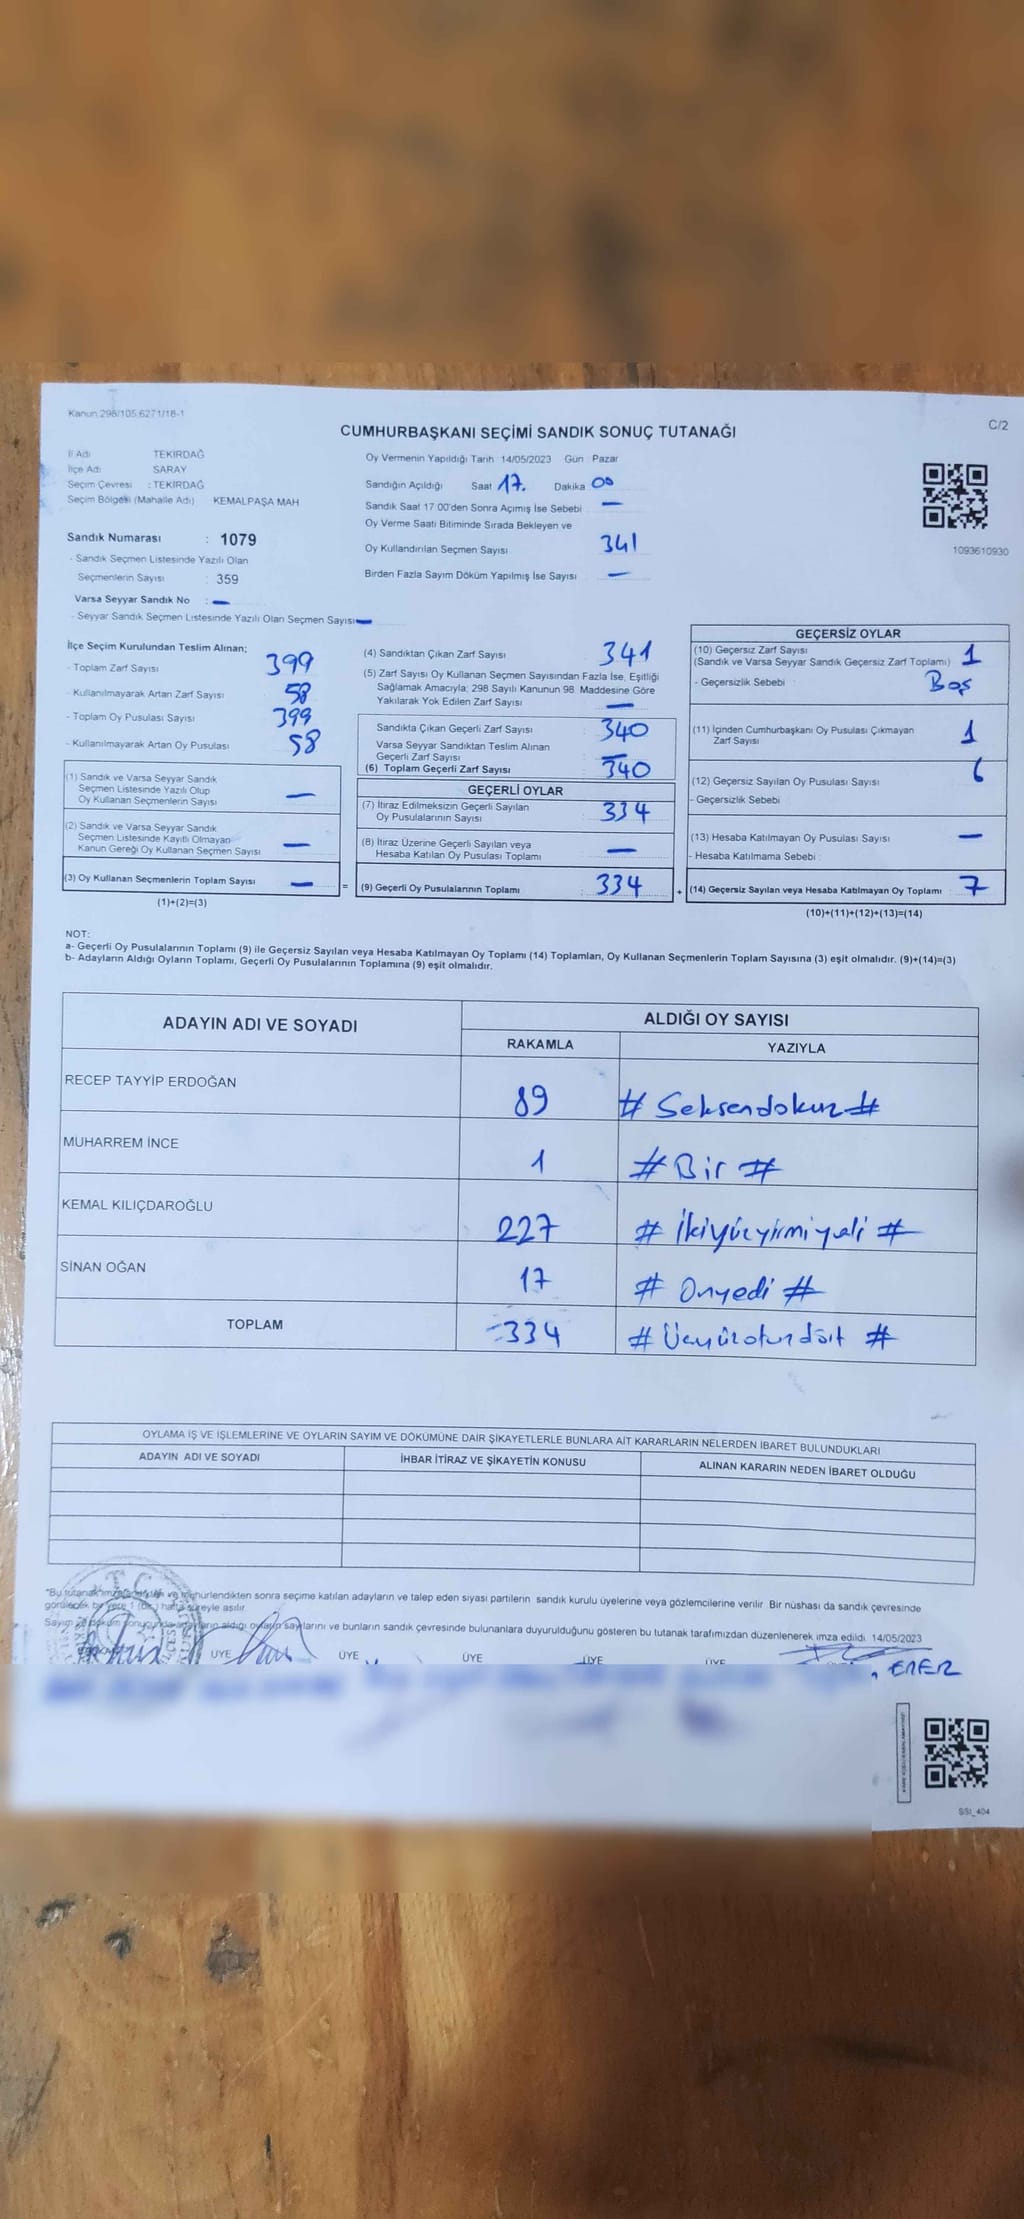 Kanun:298/105,6271/18-1
C/2
CUMHURBAŞKANI SEÇİMİ SANDIK SONUÇ TUTANAĞI
İl Adı TEKİRDAĞ
İlçe Adı SARAY
Seçim Çevresi : TEKİRDAĞ
Seçim Bölgesi (Mahalle Adı) KEMALPAŞA MAH
Oy Vermenin Yapıldığı Tarih 14/05/2023 Gün Pazar
Sandığın Açıldığı Saat 17. Dakika 00
Sandık Saat 17 00'den Sonra Açımış İse Sebebi —
Oy Verme Saati Bitiminde Sırada Bekleyen ve
Oy Kullandırılan Seçmen Sayısı 341
Birden Fazla Sayım Döküm Yapılmış İse Sayısı —
1093610930
Sandık Numarası : 1079
- Sandık Seçmen Listesinde Yazılı Olan
Seçmenlerin Sayısı : 359
Varsa Seyyar Sandık No : —
- Seyyar Sandık Seçmen Listesinde Yazılı Olan Seçmen Sayısı —
İlçe Seçim Kurulundan Teslim Alınan;
- Toplam Zarf Sayısı 399
- Kullanılmayarak Artan Zarf Sayısı 58
- Toplam Oy Pusulası Sayısı 399
- Kullanılmayarak Artan Oy Pusulası 58
(1) Sandık ve Varsa Seyyar Sandık
Seçmen Listesinde Yazılı Olup
Oy Kullanan Seçmenlerin Sayısı —
(2) Sandık ve Varsa Seyyar Sandık
Seçmen Listesinde Kayıtlı Olmayan
Kanun Gereği Oy Kullanan Seçmen Sayısı —
(3) Oy Kullanan Seçmenlerin Toplam Sayısı —
(1)+(2)=(3)
(4) Sandıktan Çıkan Zarf Sayısı 341
(5) Zarf Sayısı Oy Kullanan Seçmen Sayısından Fazla İse, Eşitliği
Sağlamak Amacıyla; 298 Sayılı Kanunun 98 Maddesine Göre
Yakılarak Yok Edilen Zarf Sayısı —
Sandıkta Çıkan Geçerli Zarf Sayısı 340
Varsa Seyyar Sandıktan Teslim Alınan
Geçerli Zarf Sayısı —
(6) Toplam Geçerli Zarf Sayısı 340
GEÇERLİ OYLAR
(7) İtiraz Edilmeksizin Geçerli Sayılan
Oy Pusulalarının Sayısı 334
(8) İtiraz Üzerine Geçerli Sayılan veya
Hesaba Katılan Oy Pusulası Toplamı —
= (9) Geçerli Oy Pusulalarının Toplamı 334 +
GEÇERSİZ OYLAR
(10) Geçersiz Zarf Sayısı
(Sandık ve Varsa Seyyar Sandık Geçersiz Zarf Toplamı) 1
- Geçersizlik Sebebi : Boş
(11) İçinden Cumhurbaşkanı Oy Pusulası Çıkmayan
Zarf Sayısı 1
(12) Geçersiz Sayılan Oy Pusulası Sayısı 6
- Geçersizlik Sebebi
(13) Hesaba Katılmayan Oy Pusulası Sayısı —
- Hesaba Katılmama Sebebi :
(14) Geçersiz Sayılan veya Hesaba Katılmayan Oy Toplamı 7
(10)+(11)+(12)+(13)=(14)
NOT:
a- Geçerli Oy Pusulalarının Toplamı (9) ile Geçersiz Sayılan veya Hesaba Katılmayan Oy Toplamı (14) Toplamları, Oy Kullanan Seçmenlerin Toplam Sayısına (3) eşit olmalıdır. (9)+(14)=(3)
b- Adayların Aldığı Oyların Toplamı, Geçerli Oy Pusulalarının Toplamına (9) eşit olmalıdır.
ADAYIN ADI VE SOYADI ALDIĞI OY SAYISI
RAKAMLA YAZIYLA
RECEP TAYYİP ERDOĞAN 89 # Seksendokuz #
MUHARREM İNCE 1 # Bir #
KEMAL KILIÇDAROĞLU 227 # İkiyüzyirmiyedi #
SİNAN OĞAN 17 # Onyedi #
TOPLAM 334 # Üçyüzotuzdört #
OYLAMA İŞ VE İŞLEMLERİNE VE OYLARIN SAYIM VE DÖKÜMÜNE DAİR ŞİKAYETLERLE BUNLARA AİT KARARLARIN NELERDEN İBARET BULUNDUKLARI
ADAYIN ADI VE SOYADI İHBAR İTİRAZ VE ŞİKAYETİN KONUSU ALINAN KARARIN NEDEN İBARET OLDUĞU
*Bu tutanak ve mühürlendikten sonra seçime katılan adayların ve talep eden siyasi partilerin sandık kurulu üyelerine veya gözlemcilerine verilir. Bir nüshası da sandık çevresinde
görülecek bir yere 1 (bir) hafta süreyle asılır.
Sayım ve döküm sonucunda adayların aldığı oyların sayılarını ve bunların sandık çevresinde bulunanlara duyurulduğunu gösteren bu tutanak tarafımızdan düzenlenerek imza edildi. 14/05/2023
ÜYE ÜYE ÜYE ÜYE ÜYE
ENER
SSI_404